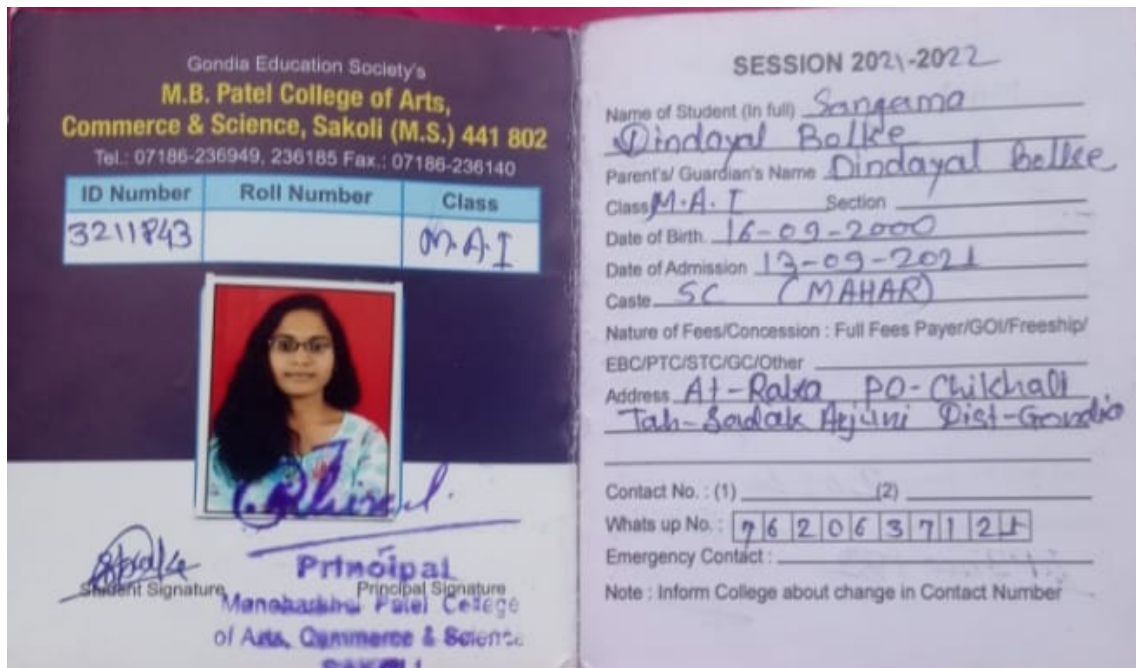 Gondia Education Society's
M.B. Patel College of Arts,
Commerce & Science, Sakoli (M.S.) 441 802
Tel.: 07186-236949, 236185 Fax.: 07186-236140
ID Number Roll Number Class
3211843 M.A.I
Student Signature
Principal
Principal Signature
Manoharbhai Patel College
of Arts, Commerce & Science
SAKOLI
SESSION 2021-2022
Name of Student (In full) Sangama
Dindayal Bolke
Parent's/ Guardian's Name Dindayal Bolke
Class M.A.I Section
Date of Birth. 16-09-2000
Date of Admission 13-09-2021
Caste SC (MAHAR)
Nature of Fees/Concession : Full Fees Payer/GOI/Freeship/
EBC/PTC/STC/GC/Other
Address At-Raka PO-Chikhali
Tah-Sadak Arjuni Dist-Gondia
Contact No. : (1) (2)
Whats up No. : 7620637121
Emergency Contact :
Note : Inform College about change in Contact Number